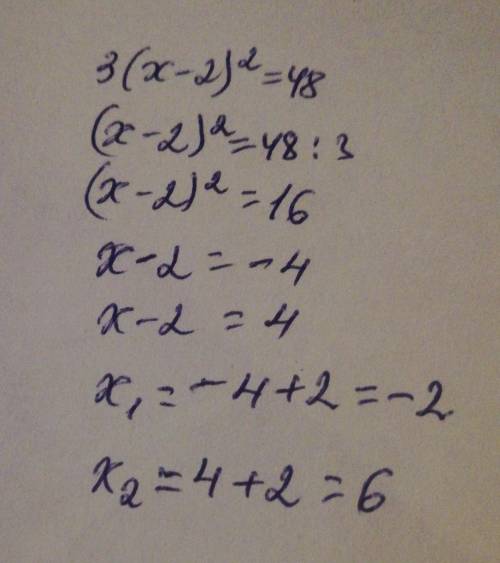 3(x-2)²=48
(x-2)²=48:3
(x-2)²=16
x-2=-4
x-2=4
x₁=-4+2=-2
x₂=4+2=6